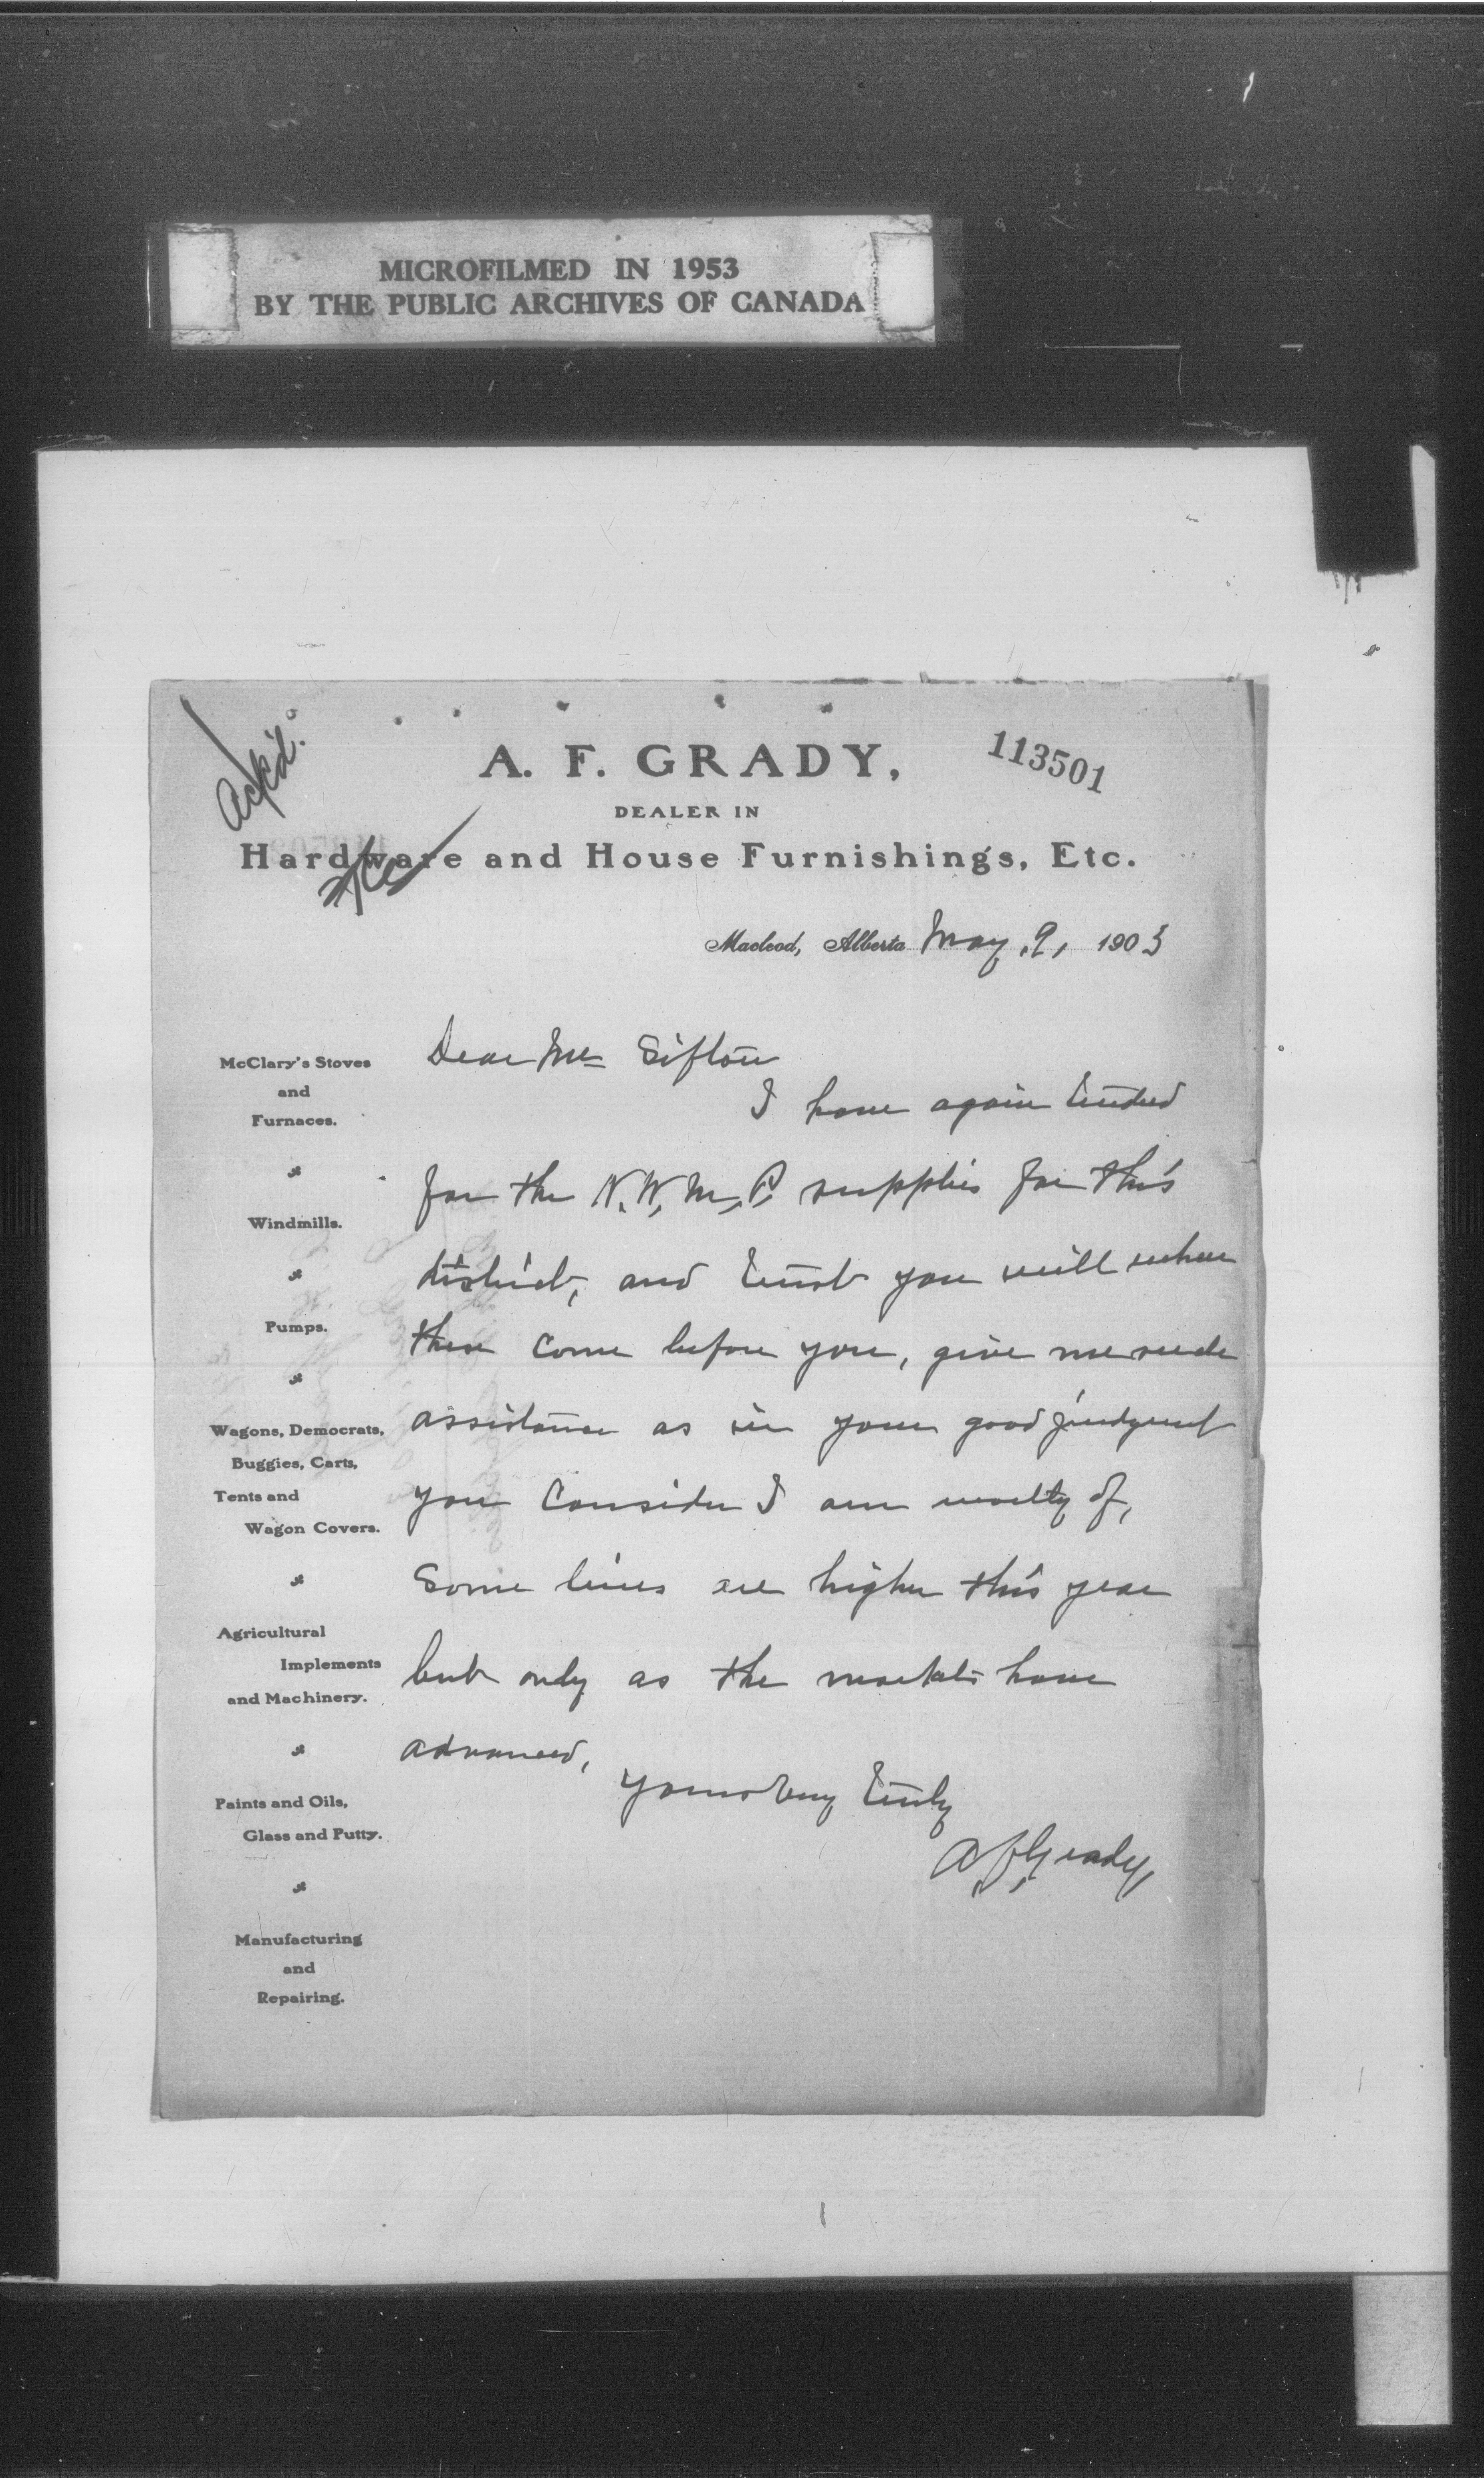 MICROFILMED IN 1953
BY THE PUBLIC ARCHIVES OF CANADA
Ack'd.
113501
A. F. GRADY,
DEALER IN
Hardware and House Furnishings, Etc.
Macleod, Alberta May, 9, 1903
McClary's Stoves
and
Furnaces.
Windmills.
Pumps.
Wagons, Democrats,
Buggies, Carts,
Tents and
Wagon Covers.
Agricultural
Implements
and Machinery.
Paints and Oils,
Glass and Putty.
Manufacturing
and
Repairing.
Dear Mr Sifton
I have again tendered
for the N.W.M.P. supplies for this
district, and trust you will when
these come before you, give me such
assistance as in your good judgment
you consider I am worthy of,
Some lines are higher this year
but only as the markets have
advanced,
Yours very truly
A.F. Grady,